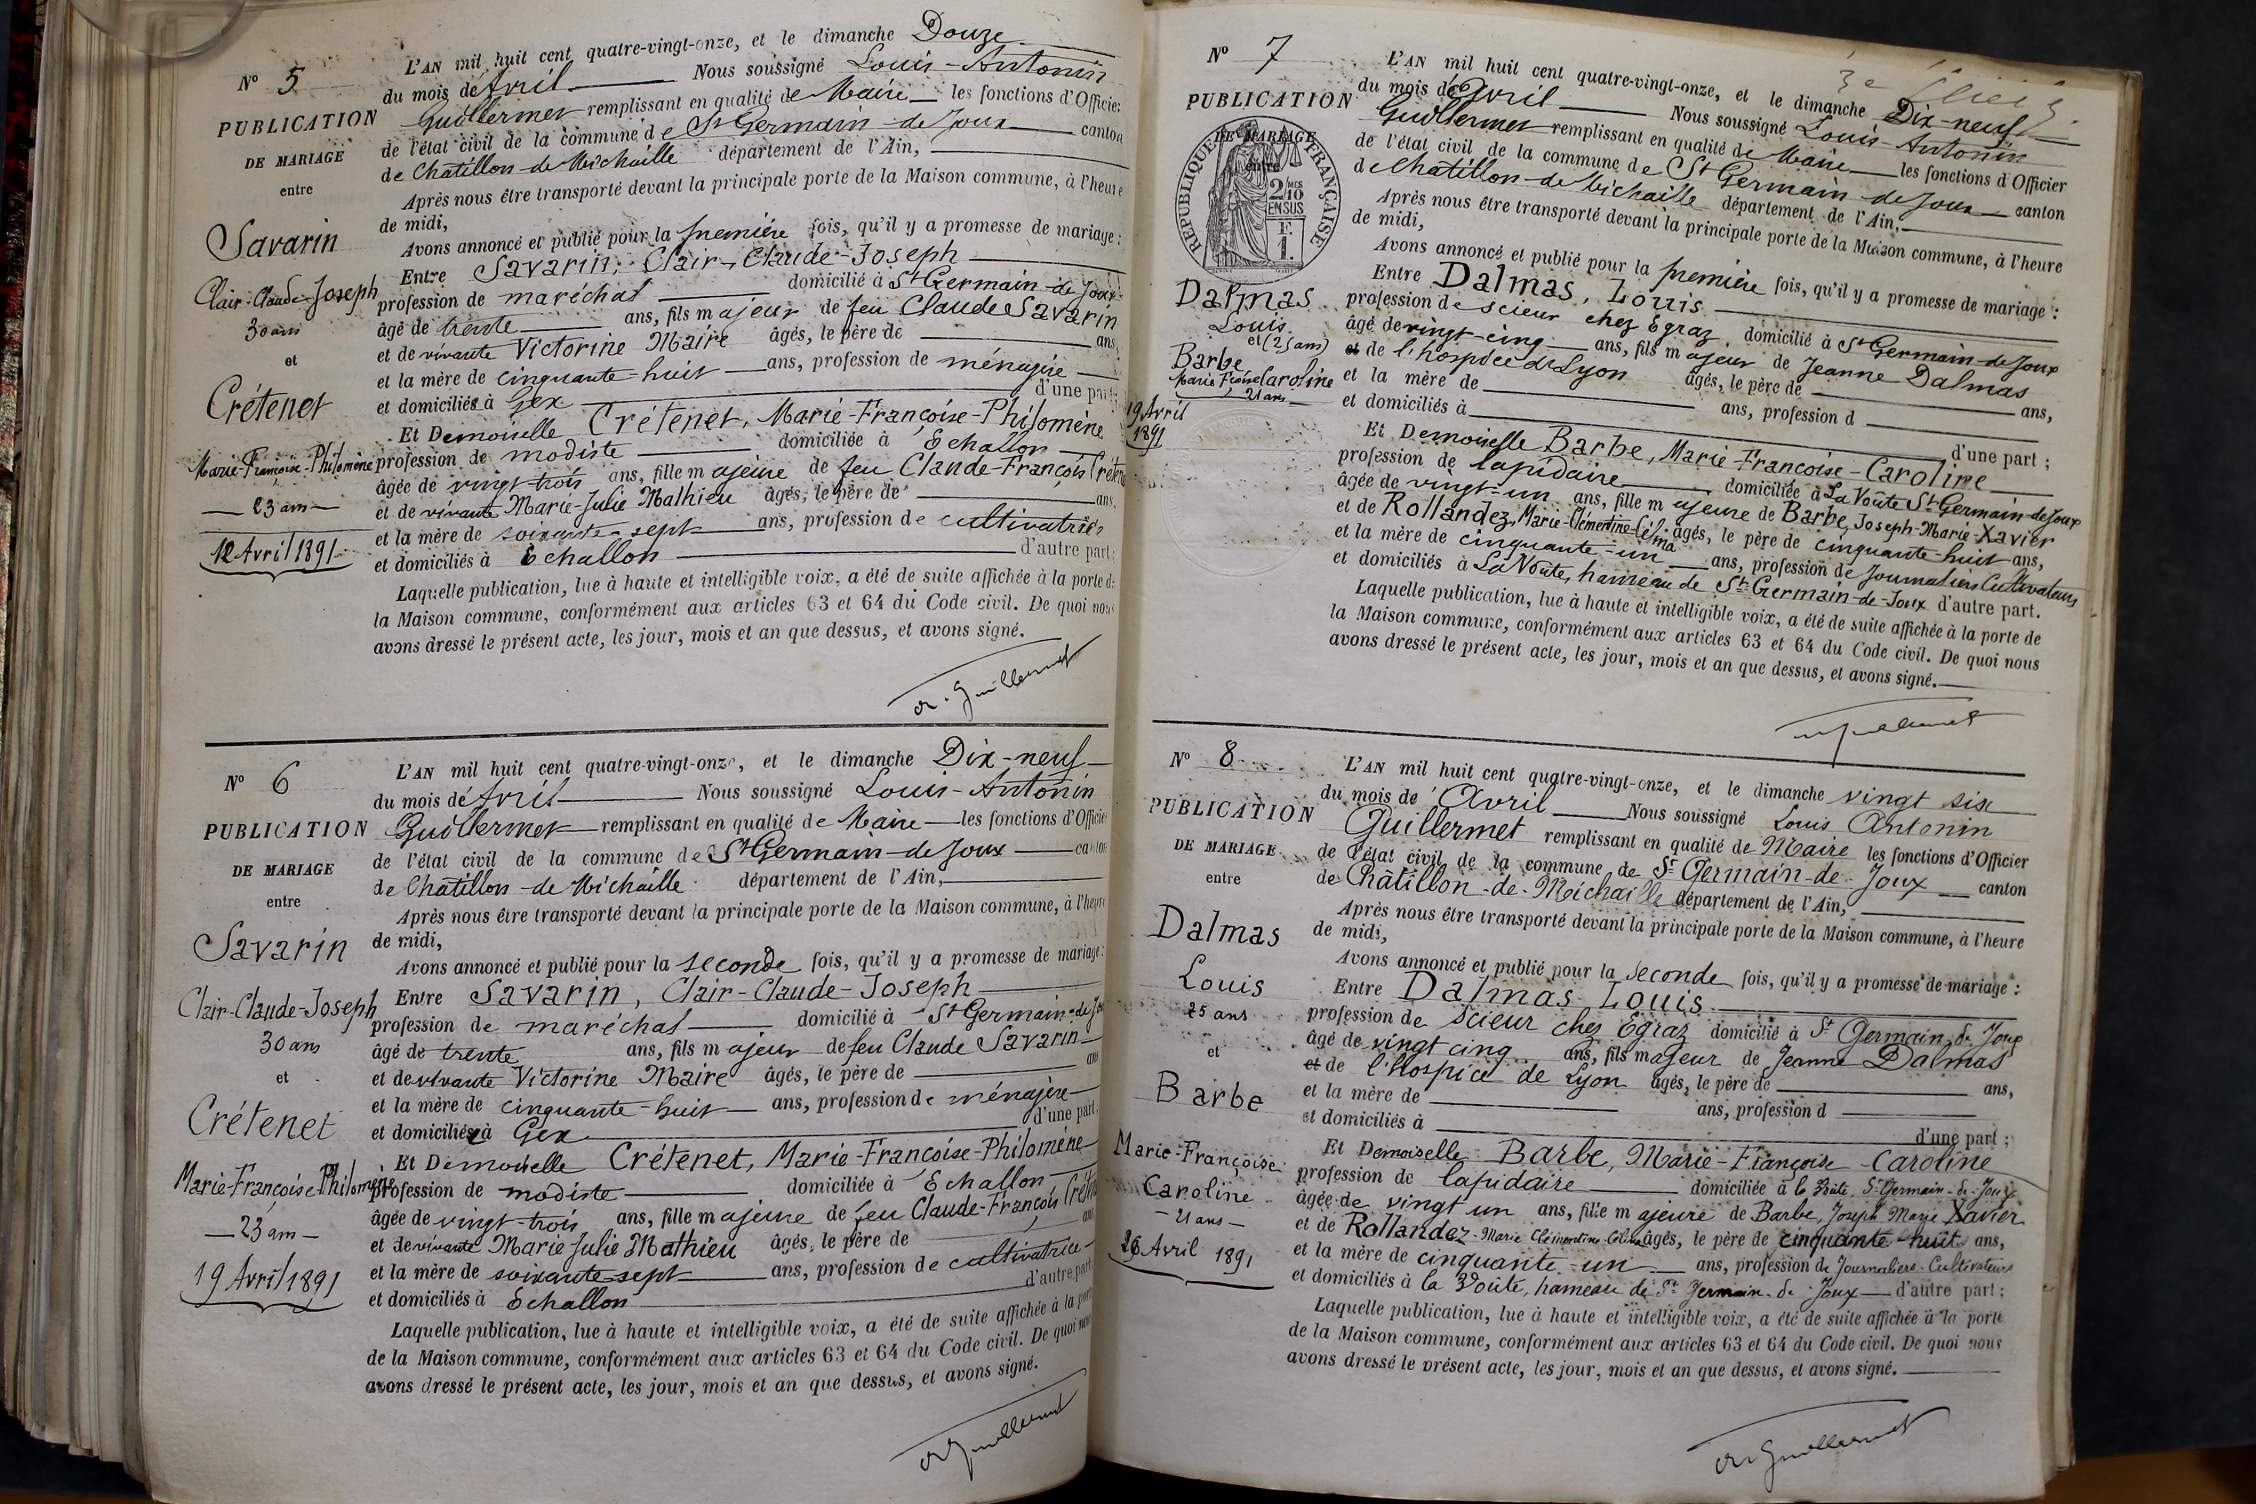 N° 5
PUBLICATION
DE MARIAGE
entre
Savarin
Clair-Claude-Joseph
30 ans
et
Crétenet
Marie-Françoise-Philomène
23 ans
12 Avril 1891
L'AN mil huit cent quatre-vingt-onze, et le dimanche Douze
du mois de Avril Nous soussigné Louis-Antonin
Guillermet remplissant en qualité de Maire les fonctions d'Officier
de l'état civil de la commune de St Germain-de-Joux canton
de Châtillon-de-Michaille département de l'Ain,
Après nous être transporté devant la principale porte de la Maison commune, à l'heure
de midi,
Avons annoncé et publié pour la première fois, qu'il y a promesse de mariage :
Entre Savarin, Clair-Claude-Joseph
profession de maréchal domicilié à St Germain-de-Joux
âgé de trente ans, fils majeur de feu Claude Savarin
et de vivante Victorine Maire âgés, le père de ans,
et la mère de cinquante-huit ans, profession de ménagère
et domiciliés à Gex d'une part;
Et Demoiselle Crétenet, Marie-Françoise-Philomène
profession de modiste domiciliée à Echallon
âgée de vingt-trois ans, fille majeure de feu Claude-François Créten
et de vivante Marie-Julie Mathieu âgés, le père de ans,
et la mère de soixante-sept ans, profession de cultivatrice
et domiciliés à Echallon d'autre part;
Laquelle publication, lue à haute et intelligible voix, a été de suite affichée à la porte de
la Maison commune, conformément aux articles 63 et 64 du Code civil. De quoi nous
avons dressé le présent acte, les jour, mois et an que dessus, et avons signé.
A. Guillermet
N° 6
PUBLICATION
DE MARIAGE
entre
Savarin
Clair-Claude-Joseph
30 ans
et
Crétenet
Marie-Françoise-Philomène
23 ans
19 Avril 1891
L'AN mil huit cent quatre-vingt-onze, et le dimanche Dix-neuf
du mois de Avril Nous soussigné Louis-Antonin
Guillermet remplissant en qualité de Maire les fonctions d'Officier
de l'état civil de la commune de St Germain-de-Joux canton
de Châtillon-de-Michaille département de l'Ain,
Après nous être transporté devant la principale porte de la Maison commune, à l'heure
de midi,
Avons annoncé et publié pour la seconde fois, qu'il y a promesse de mariage :
Entre Savarin, Clair-Claude-Joseph
profession de maréchal domicilié à St Germain-de-Jou
âgé de trente ans, fils majeur de feu Claude Savarin
et de vivante Victorine Maire âgés, le père de ans
et la mère de cinquante-huit ans, profession de ménagère
et domiciliés à Gex d'une part
Et Demoiselle Crétenet, Marie-Françoise-Philomène
profession de modiste domiciliée à Echallon
âgée de vingt-trois ans, fille majeure de feu Claude-François Créten
et de vivante Marie Julie Mathieu âgés, le père de ans
et la mère de soixante-sept ans, profession de cultivatrice
et domiciliés à Echallon d'autre part
Laquelle publication, lue à haute et intelligible voix, a été de suite affichée à la porte
de la Maison commune, conformément aux articles 63 et 64 du Code civil. De quoi nous
avons dressé le présent acte, les jour, mois et an que dessus, et avons signé.
A Guillermet
N° 7
PUBLICATION
DE MARIAGE
entre
RÉPUBLIQUE FRANÇAISE
2/10 MES
EN SUS
1 F.
Dalmas
Louis
et (25 ans)
Barbe
Marie Frçoise Caroline
21 ans
19 Avril
1891
L'AN mil huit cent quatre-vingt-onze, et le dimanche Dix-neuf
du mois de Avril Nous soussigné Louis-Antonin
Guillermet remplissant en qualité de Maire les fonctions d'Officier
de l'état civil de la commune de St Germain-de-Joux canton
de Châtillon-de-Michaille département de l'Ain,
Après nous être transporté devant la principale porte de la Maison commune, à l'heure
de midi,
Avons annoncé et publié pour la première fois, qu'il y a promesse de mariage :
Entre Dalmas, Louis
profession de scieur chez Egraz domicilié à St Germain-de-Joux
âgé de vingt-cinq ans, fils majeur de Jeanne Dalmas
et de l'hospice de Lyon âgés, le père de ans,
et la mère de ans, profession d
et domiciliés à d'une part ;
Et Demoiselle Barbe, Marie-Françoise-Caroline
profession de lapidaire domiciliée à La Voûte St Germain-de-Joux
âgée de vingt-un ans, fille majeure de Barbe, Joseph-Marie-Xavier
et de Rollandez, Marie-Clémentine-Célina âgés, le père de cinquante-huit ans,
et la mère de cinquante-un ans, profession de Journaliers Cultivateurs
et domiciliés à La Voûte, hameau de St Germain-de-Joux d'autre part.
Laquelle publication, lue à haute et intelligible voix, a été de suite affichée à la porte de
la Maison commune, conformément aux articles 63 et 64 du Code civil. De quoi nous
avons dressé le présent acte, les jour, mois et an que dessus, et avons signé.
N° 8
PUBLICATION
DE MARIAGE
entre
Dalmas
Louis
25 ans
et
Barbe
Marie-Françoise
Caroline
21 ans
26 Avril 1891
L'AN mil huit cent quatre-vingt-onze, et le dimanche vingt six
du mois de Avril Nous soussigné Louis Antonin
Guillermet remplissant en qualité de Maire les fonctions d'Officier
de l'état civil de la commune de St Germain-de-Joux canton
de Châtillon-de-Michaille département de l'Ain,
Après nous être transporté devant la principale porte de la Maison commune, à l'heure
de midi,
Avons annoncé et publié pour la seconde fois, qu'il y a promesse de mariage :
Entre Dalmas Louis
profession de scieur chez Egraz domicilié à St Germain-de-Joux
âgé de vingt cinq ans, fils majeur de Jeanne Dalmas
et de l'Hospice de Lyon âgés, le père de ans,
et la mère de ans, profession d
et domiciliés à d'une part ;
Et Demoiselle Barbe, Marie-Françoise-Caroline
profession de lapidaire domiciliée à la Voûte St Germain-de-Joux
âgée de vingt un ans, fille majeure de Barbe, Joseph Marie Xavier
et de Rollandez-Marie Clémentine-Célina âgés, le père de cinquante-huit ans,
et la mère de cinquante-un ans, profession de Journaliers-Cultivateurs
et domiciliés à la Voûte, hameau de St Germain-de-Joux d'autre part ;
Laquelle publication, lue à haute et intelligible voix, a été de suite affichée à la porte
de la Maison commune, conformément aux articles 63 et 64 du Code civil. De quoi nous
avons dressé le présent acte, les jour, mois et an que dessus, et avons signé.
A Guillermet